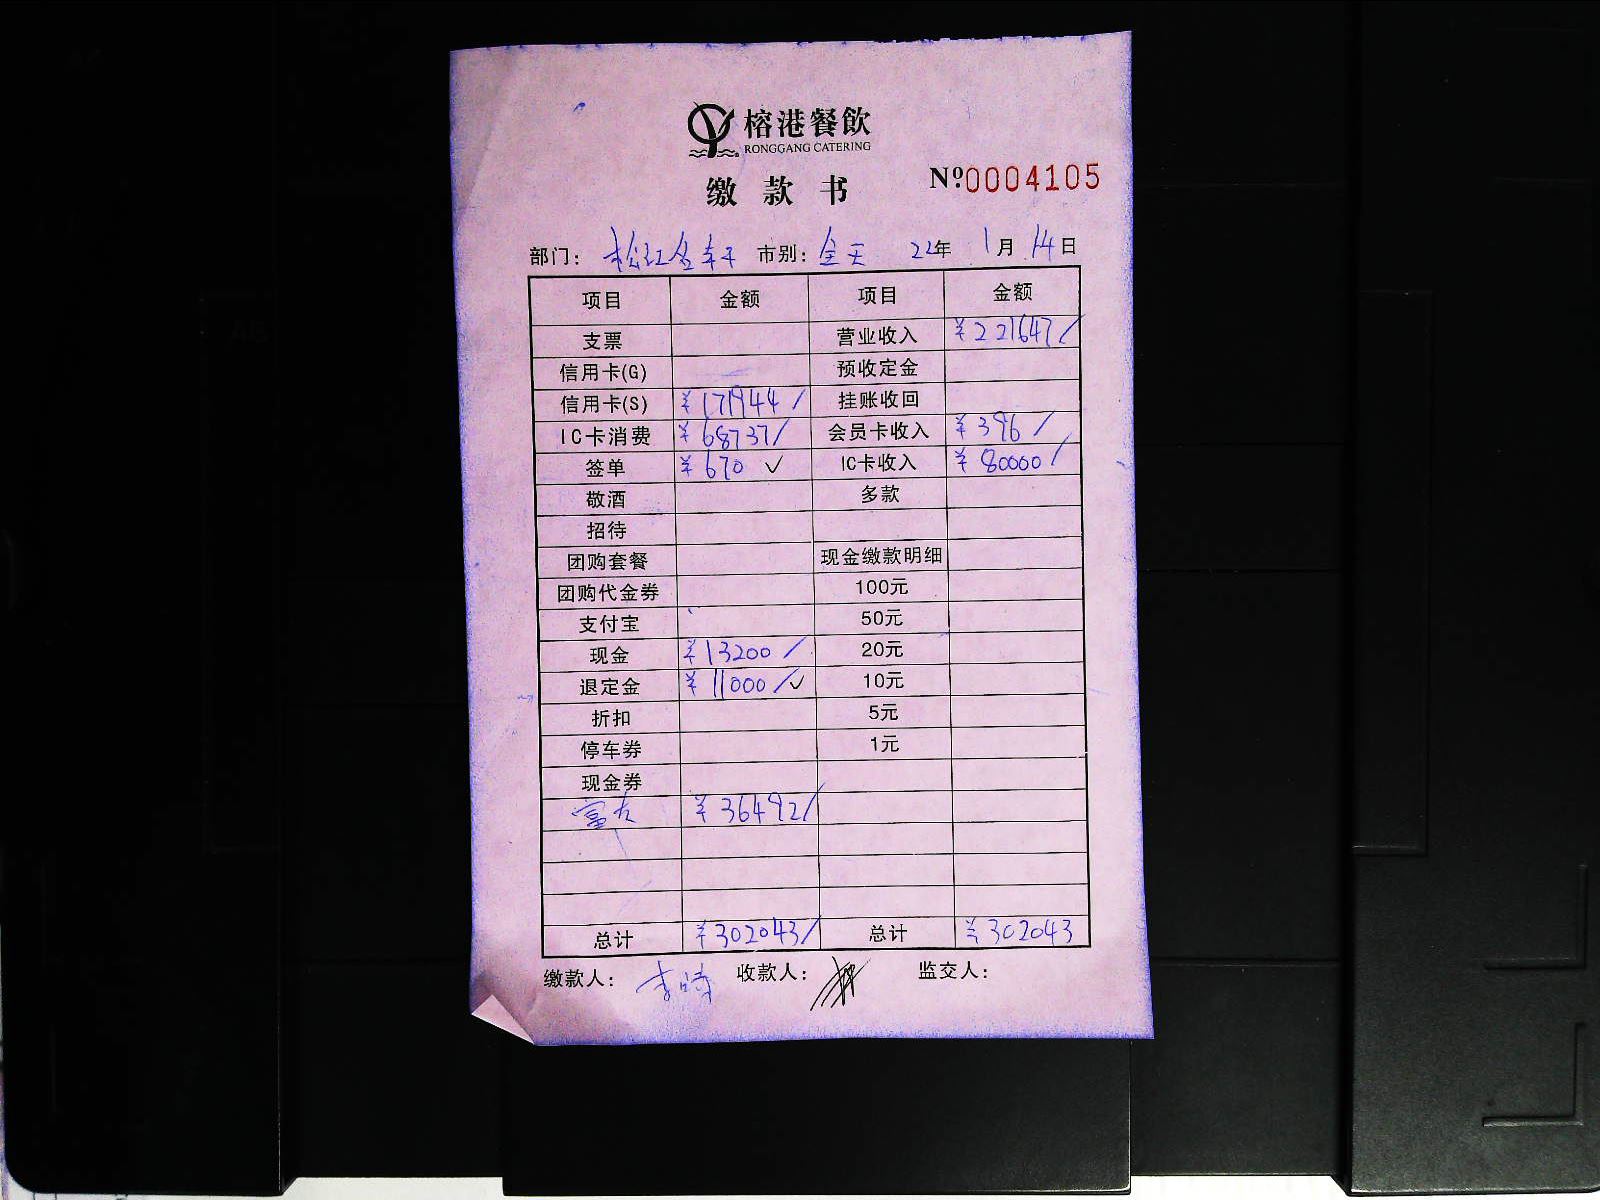 榕港餐飲
RONGGANG CATERING
缴款书
Nº0004105
部门: 松江 市别: 全天 22年 1月 14日
项目 金额 项目 金额
支票 营业收入 ¥221647/
信用卡(G) 预收定金
信用卡(S) ¥171944/ 挂账收回
IC卡消费 ¥68737/ 会员卡收入 ¥396/
签单 ¥670 ✓ IC卡收入 ¥80000/
敬酒 多款
招待
团购套餐 现金缴款明细
团购代金券 100元
支付宝 50元
现金 ¥13200/ 20元
退定金 ¥11000/✓ 10元
折扣 5元
停车券 1元
现金券
¥36492/
总计 ¥302043/ 总计 ¥302043
缴款人: 收款人: 监交人: